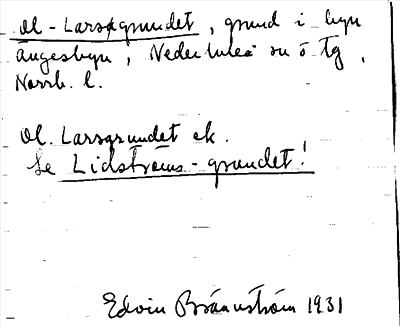 Ol-Larsagrundet, grund i byn
Ängesbyn, Nederluleå sn o tg,
Norrb. l.
Ol. Larsgrundet ek.
Se Lidströms-grundet!
Edvin Brännström 1931